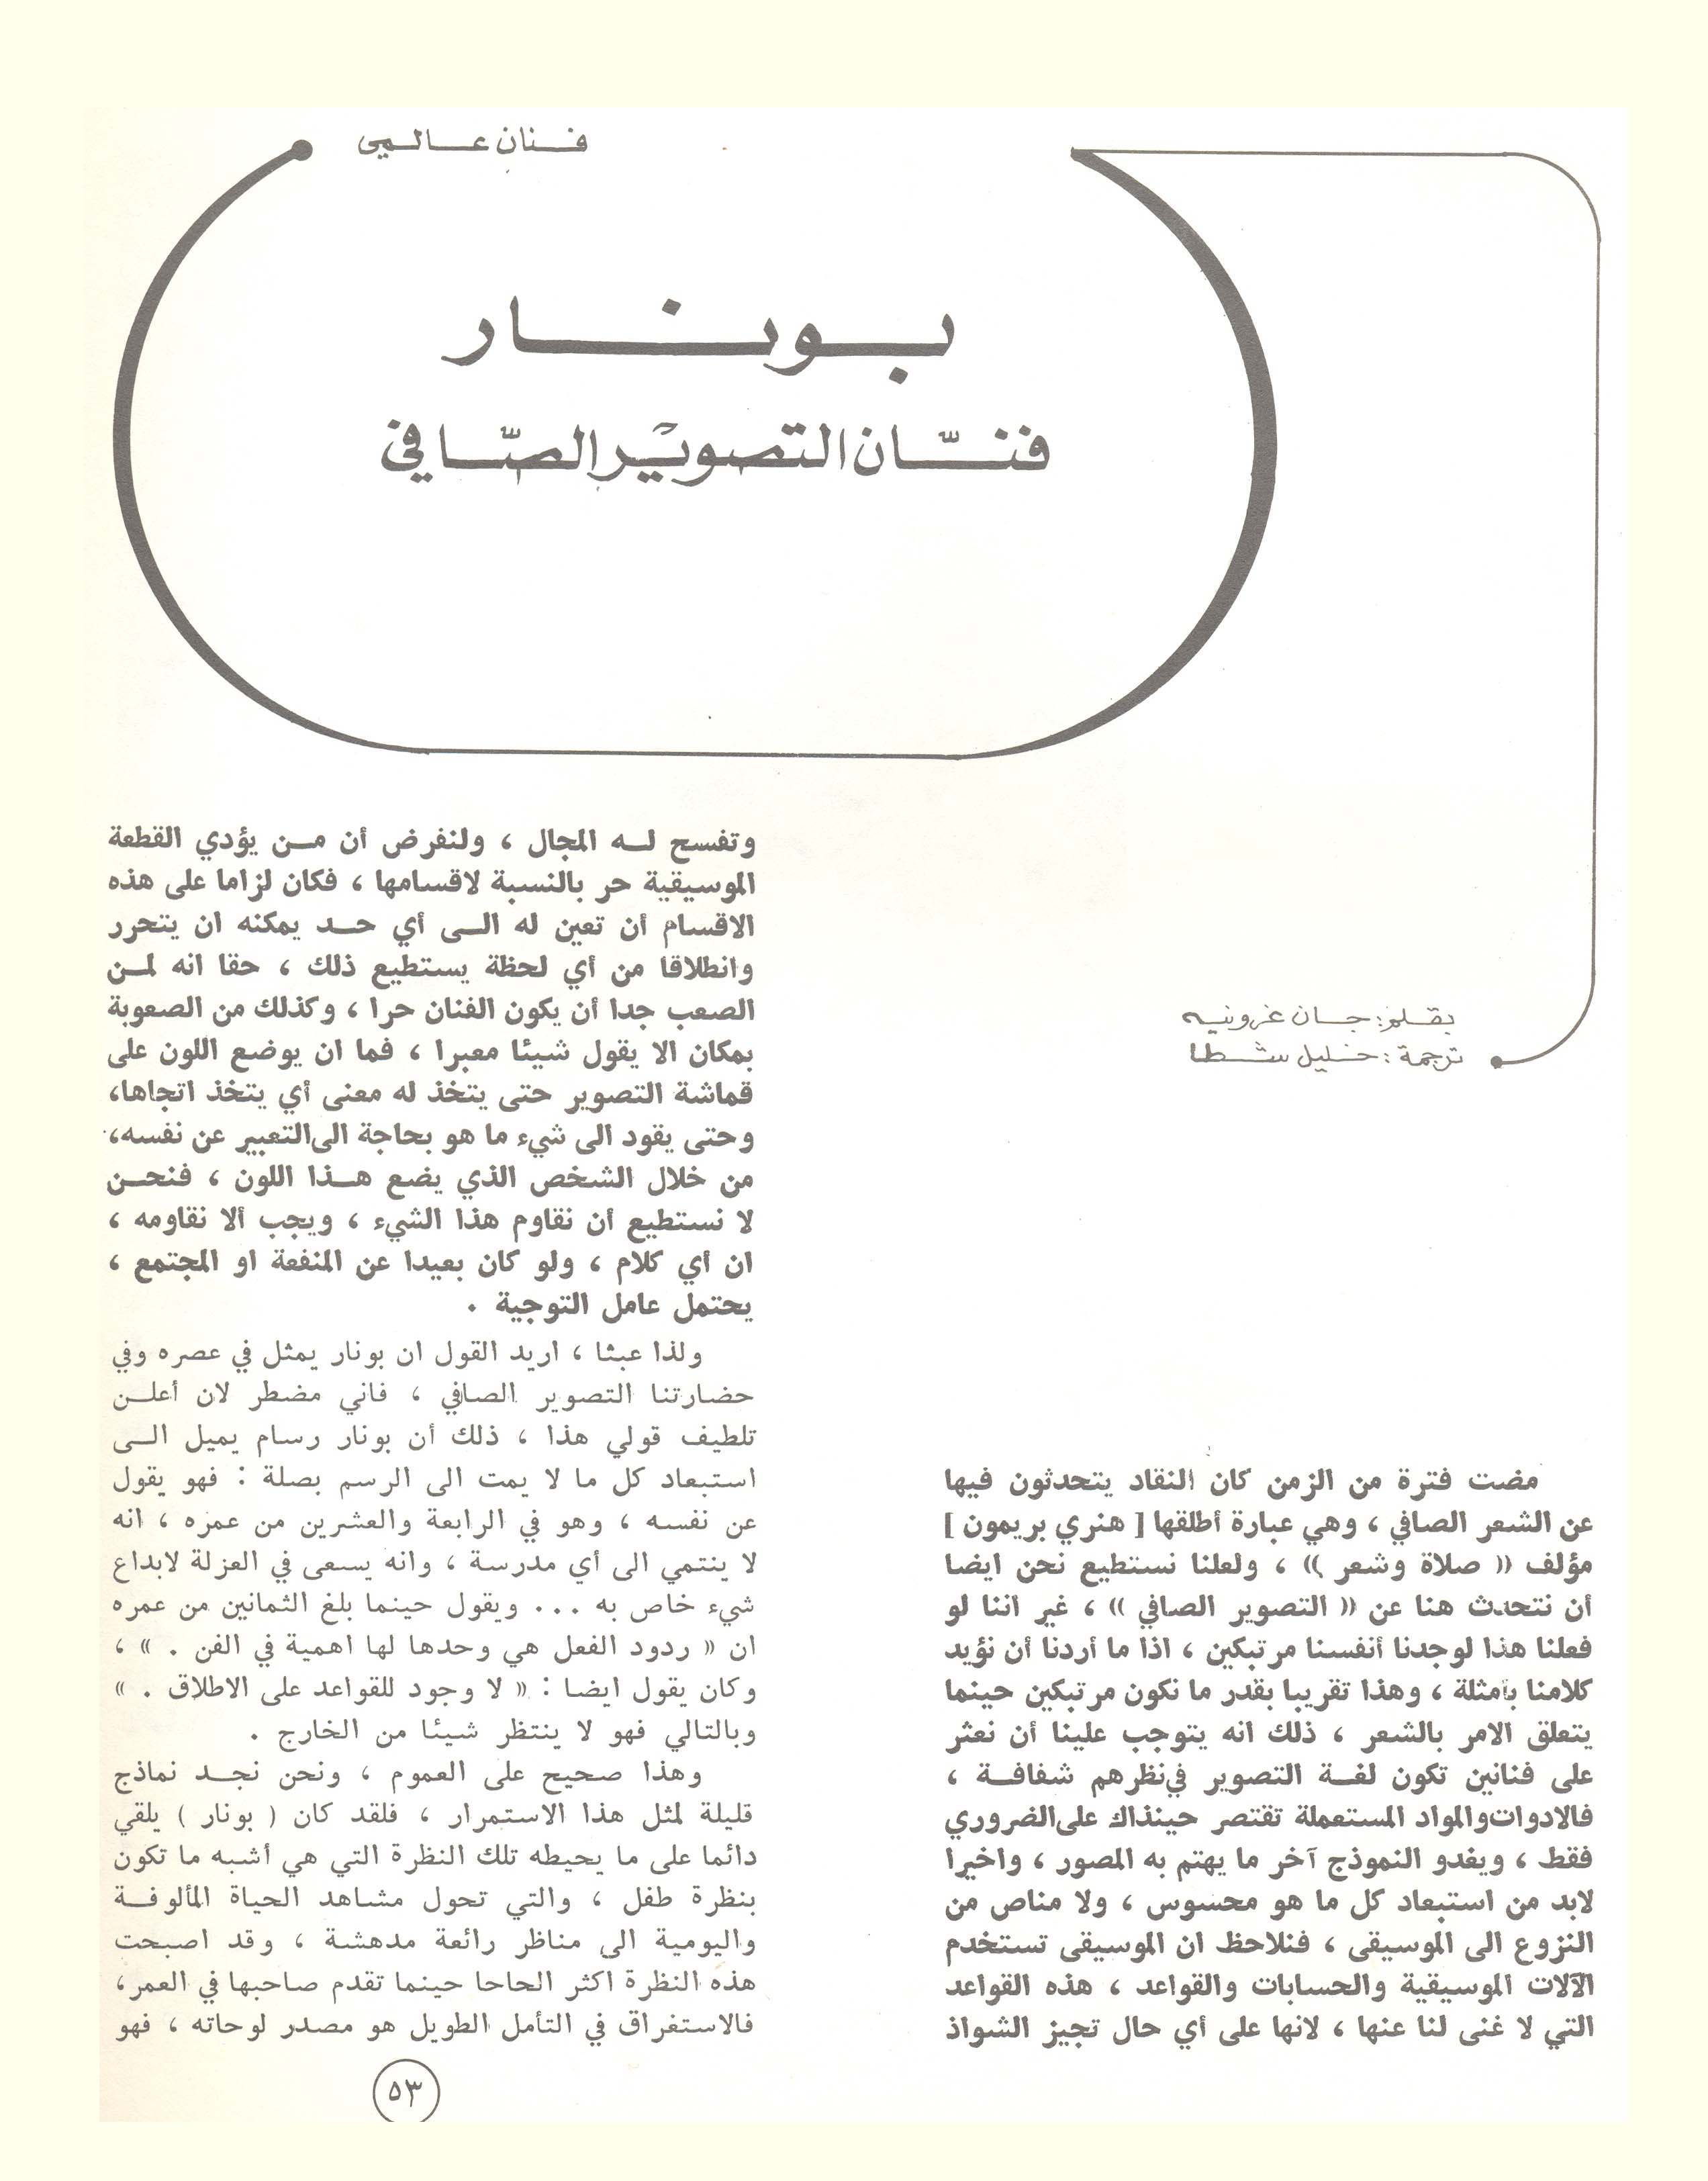 فنان عالمي
بونار
فنّان التصوير الصّافي
بقلم: جان غرونييه
ترجمة: خليل شطا
مضت فترة من الزمن كان النقاد يتحدثون فيها
عن الشعر الصافي ، وهي عبارة أطلقها [ هنري بريمون ]
مؤلف (( صلاة وشعر )) ، ولعلنا نستطيع نحن ايضا
أن نتحدث هنا عن (( التصوير الصافي )) ، غير اننا لو
فعلنا هذا لوجدنا أنفسنا مرتبكين ، اذا ما أردنا أن نؤيد
كلامنا بأمثلة ، وهذا تقريبا بقدر ما نكون مرتبكين حينما
يتعلق الامر بالشعر ، ذلك انه يتوجب علينا أن نعثر
على فنانين تكون لغة التصوير في نظرهم شفافة ،
فالادوات والمواد المستعملة تقتصر حينذاك على الضروري
فقط ، ويغدو النموذج آخر ما يهتم به المصور ، واخيرا
لابد من استبعاد كل ما هو محسوس ، ولا مناص من
النزوع الى الموسيقى ، فنلاحظ ان الموسيقى تستخدم
الآلات الموسيقية والحسابات والقواعد ، هذه القواعد
التي لا غنى لنا عنها ، لانها على أي حال تجيز الشواذ
وتفسح لـه المجال ، ولنفرض أن مـن يؤدي القطعة
الموسيقية حر بالنسبة لاقسامها ، فكان لزاما على هذه
الاقسام أن تعين له الـى أي حـد يمكنه ان يتحرر
وانطلاقا من أي لحظة يستطيع ذلك ، حقا انه لمـن
الصعب جدا أن يكون الفنان حرا ، وكذلك من الصعوبة
بمكان الا يقول شيئا معبرا ، فما ان يوضع اللون على
قماشة التصوير حتى يتخذ له معنى أي يتخذ اتجاها،
وحتى يقود الى شيء ما هو بحاجة الى التعبير عن نفسه،
من خلال الشخص الذي يضع هـذا اللون ، فنحـن
لا نستطيع أن نقاوم هذا الشيء ، ويجب ألا نقاومه ،
ان أي كلام ، ولو كان بعيدا عن المنفعة او المجتمع ،
يحتمل عامل التوجية .
ولذا عبثا ، اريد القول ان بونار يمثل في عصره وفي
حضارتنا التصوير الصافي ، فاني مضطر لان أعلـن
تلطيف قولي هذا ، ذلك أن بونار رسام يميل الـى
استبعاد كل ما لا يمت الى الرسم بصلة : فهو يقول
عن نفسه ، وهو في الرابعة والعشرين من عمره ، انه
لا ينتمي الى أي مدرسة ، وانه يسعى في العزلة لابداع
شيء خاص به ... ويقول حينما بلغ الثمانين من عمره
ان (( ردود الفعل هي وحدها لها اهمية في الفن . )) ،
وكان يقول ايضا : (( لا وجود للقواعد على الاطلاق . ))
وبالتالي فهو لا ينتظر شيئا من الخارج .
وهذا صحيح على العموم ، ونحن نجـد نماذج
قليلة لمثل هذا الاستمرار ، فلقد كان ( بونار ) يلقي
دائما على ما يحيطه تلك النظرة التي هي أشبه ما تكون
بنظرة طفل ، والتي تحول مشاهد الحياة المألوفـة
واليومية الى مناظر رائعة مدهشة ، وقد اصبحت
هذه النظرة اكثر الحاحا حينما تقدم صاحبها في العمر،
فالاستغراق في التأمل الطويل هو مصدر لوحاته ، فهو
٥٣